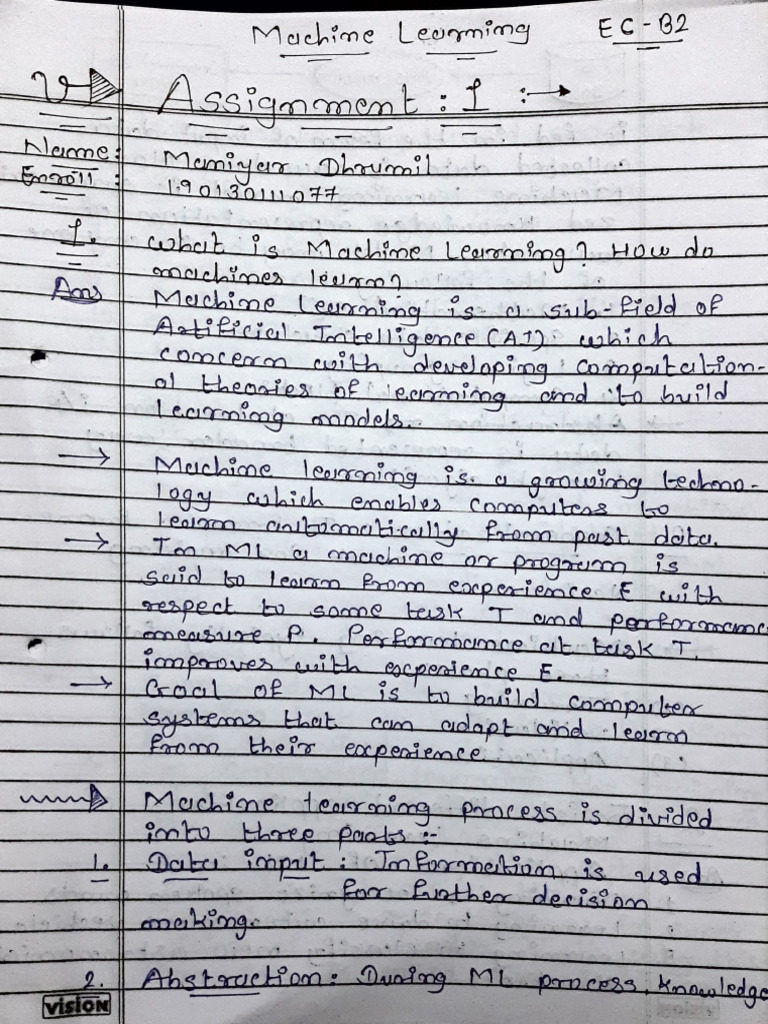 Machine Learning EC-B2
Assignment : 1 :→
Name: Maniyar Dhrumil
Enroll : 190130111077
1. What is Machine Learning? How do
machines learn?
Ans Machine Learning is a sub-field of
Artificial Intelligence (AI) which
concern with developing computation-
al theories of learning and to build
learning models.
→ Machine learning is a growing techno-
logy which enables computers to
learn automatically from past data.
→ In ML a machine or program is
said to learn from experience E with
respect to some task T and performance
measure P. Performance at task T,
improves with experience E.
→ Goal of ML is to build computer
systems that can adapt and learn
from their experience.
Machine learning process is divided
into three parts :-
1. Data input : Information is used
for further decision
making.
2. Abstraction: During ML process, knowledge
VISION